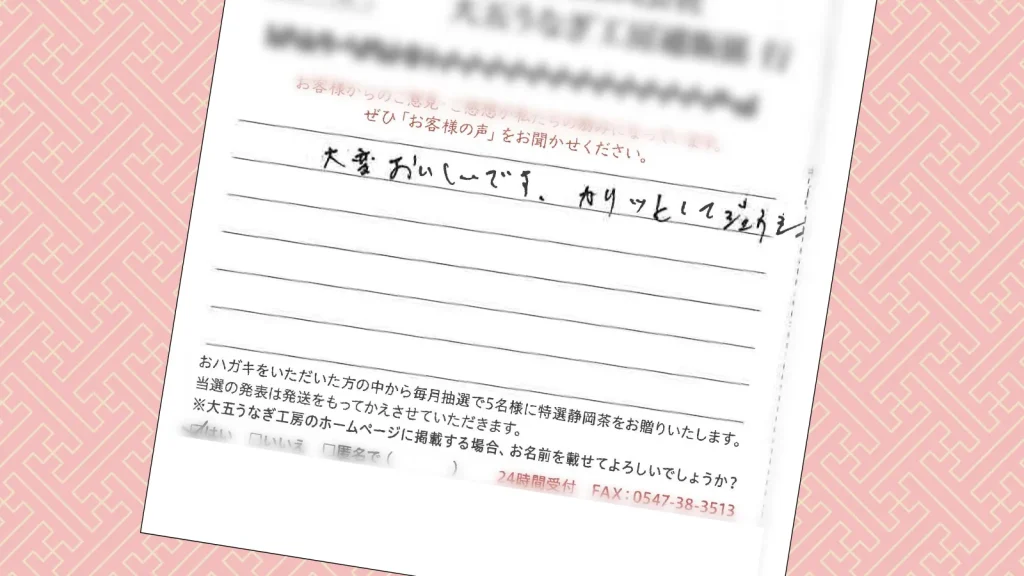 大五うなぎ工房通販係 行
お客様からのご意見・ご感想が私たちの励みになっています。
ぜひ「お客様の声」をお聞かせください。
大変おいしーです。カリッとしてジょうず。
おハガキをいただいた方の中から毎月抽選で5名様に特選静岡茶をお贈りいたします。
当選の発表は発送をもってかえさせていただきます。
※大五うなぎ工房のホームページに掲載する場合、お名前を載せてよろしいでしょうか?
☑はい □いいえ □匿名で( )
24時間受付 FAX:0547-38-3513